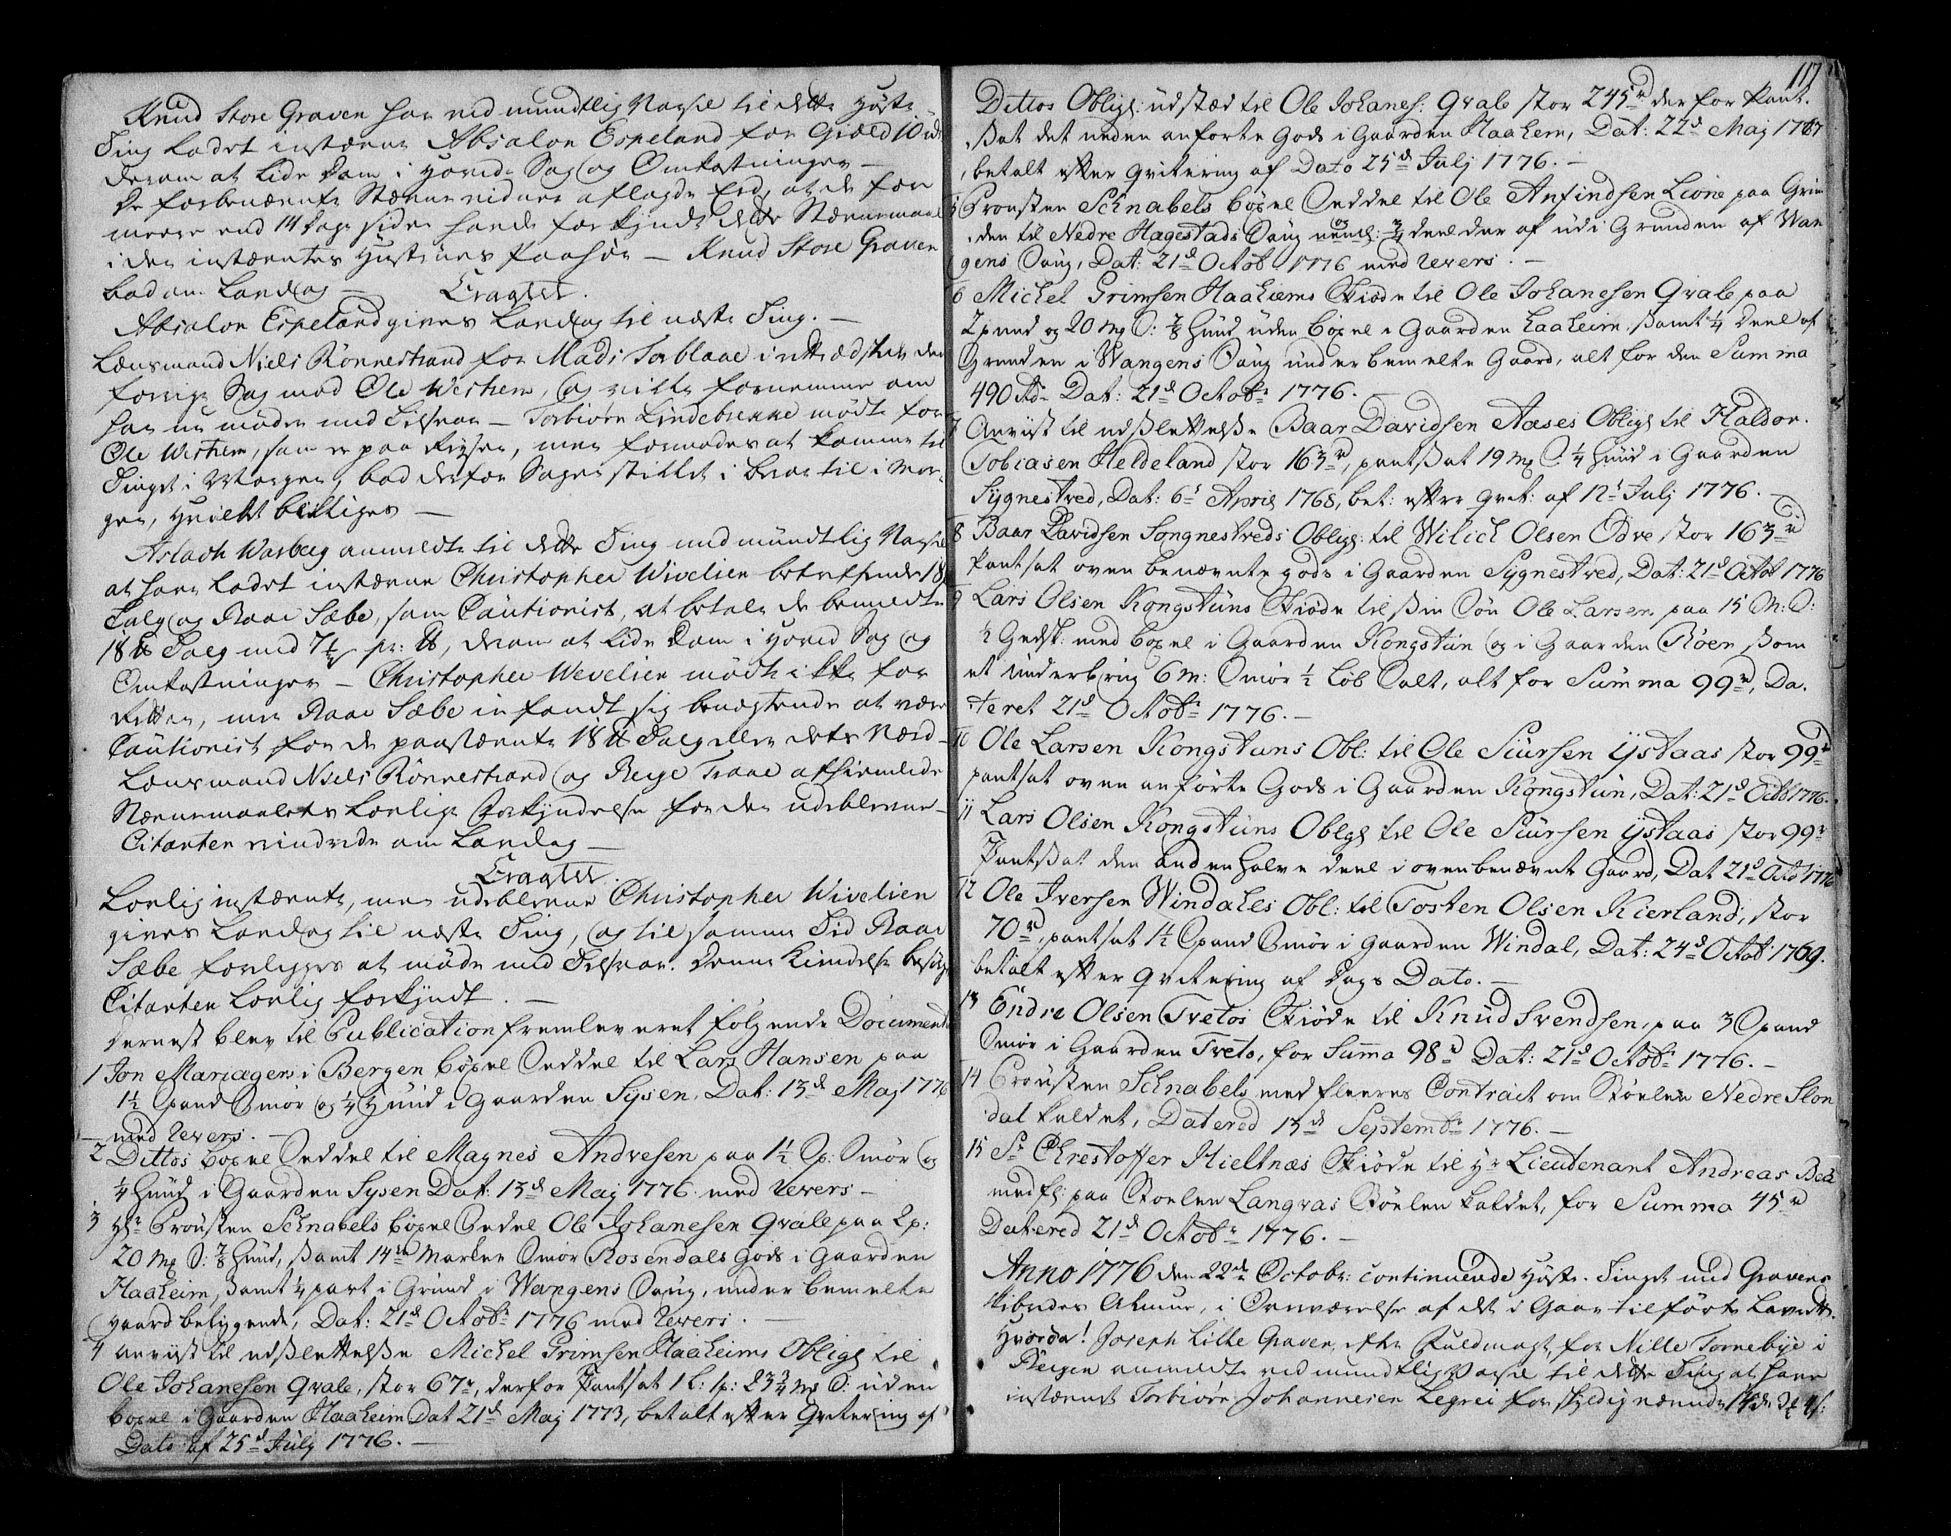 Knud Store Graven har ved mundtlig Varsel til dette Høste
Ting ladet instævne Absalon Espeland for Gield 10 rdr
derom at lide Dom i Hoved Sag og Omkostninger —
De forbenævnte Stævnevidner aflagde Eed, at de for
meere end 14 Dage siden havde forkyndt dette Stævnemaal
i den instævntes Hustrues Paahør — Knud Store Graven
bad om Laudag — Eragtet.
Absalon Espeland gives Laudag til næste Ting. —
Lensmand Niels Rönnestrand for Mads Torblaae indtrædsket den
forrige Sag mod Ole Westrem, og vilde fornemme om
han nu møder med Tilsvar — Torbiörn Lindebrekke mødte for
Ole Westrem, som er paa Reysen, men formodes at komme til
Tinget i Morgen, bad derfor Sagen stillet i Beroe til i Mor¬
gen, hvilket billiges —
Aslach Warberg anmeldte til dette Ting med mündtlig Varsel
at have ladet instævne Christopher Wivelien betreffende 18
Talg og Roar Sæbe, som Cautionist, at betale de bemeldte
18 lb Talg med 7½ pr: lb, derom at lide Dom i Hoved Sag og
Omkostninger — Christopher Wevelien mødte ikke for
Retten, men Roar Sæbe indfandt sig benægtende at være
Cautionist for de paastævnte 18 lb Talg eller dets Værd —
Lensmand Niels Rönnestrand og Reye Traae afhiemlede
Stævnemaalets Lovlige Forkyndelse for den udeblevne —
Citanten eindrede om Laudag —
Eragtet.
Lovlig instævnte, men udeblevne Christopher Wivelien
gives Laudag til næste Ting, og til samme Tid Roar
Sæbe forelegges at møde med Tilsvar. Denne Kiendelse besørger
Citanten Lovlig forkyndt. —
Dernest blev til Publication fremleveret følgende Documenter
1 Jon Mariagers i Bergen böxel Seddel til Lars Hansen paa
1½ Spand Smör og ¼ Hüud i Gaarden Sysen, Dat: 13d Maj 1776
med Revers. —
2 Dittos böxel Seddel til Magnes Andresen paa 1½ Sp: Smör og
¼ Hüud i Gaarden Sysen Dat: 13d Maj 1776 med Revers —
3 Hr Prousten Schnabels böxel Sedel Ole Johanesen Qvale paa 2p:
20 Mrk S: ⅞ Hüud, samt 14 Marker Smör Rosendals Gods i Gaarden
Haaheim, samt ¼ part i Grund i Wangens Saug, under bemelte
Gaard beliggende, Dat: 21d Octobr 1776 med Revers. —
4 anviist til udslettelse Michel Grimsen Haaheims Obligl til
Ole Johanesen Qvale, stor 67r, derfor Pantsat 1 L: sp: 23¾ Mrk S: uden
böxel i Gaarden Haaheim Dat 21d Maj 1773, betalt efter Qvitering af
Dato af 25d Julÿ 1776. —
117
Dittos Obligl: udsted til Ole Johanes: Qvale stor 245rd derfor Pant¬
sat det neden anförte Gods i Gaarden Haaheim, Dat: 22d Maj 1767
betalt efter Qvitering af Dato 25d Julj 1776. —
5 Prousten Schnabels böxel Seddel til Ole Anfindsen Lione paa Grun
den til Nedre Hægestads Saug neml: ¾ deel der af üdi Grunden af Wan
gens Saug, Dat: 21d Octob 1776 med Revers. —
6 Michel Grimsen Haahiems Skiöde til Ole Johanesen Qvale paa
2 pund og 20 Mrk S: ⅞ Hüud uden böxel i Gaarden Haaheim, samt ¼ Deel af
Grunden i Wangens Saug under bemelte Gaard, alt for den Summa
490 Rdr Dat: 21d Octobr 1776.
7 Anviist til udslettelse Baar Davidsen Aases Obligl til Haldor
Tobiasen Heldeland stor 163rd, pantsat 19 Mrk S. ¼ Hüud i Gaarden
Sygnestved, Dat: 6t April 1768, bet: efter Qvit: af 12t Julj 1776. —
8 Baar Davidsen Songnestveds Obligl: til Wilich Olsen Odve stor 163rd
Pantsat oven benævnte gods i Gaarden Sygnestved, Dat: 21d Octob 1776
9 Lars Olsen Kongstüns Skiöde til sin Sön Ole Larsen paa 15 M: S:
½ Gedsk: med böxel i Gaarden Kongstün og i Gaarden Röen som
et ünderbrug 6 M: Smör ½ Löb Salt, alt for Summa 99rd, Da¬
teret 21d Octobr 1776. —
10 Ole Larsen Kongstuns Obl: til Ole Siursen ÿstaas stor 99rd
pantsat oven anförte Gods i Gaarden Kongstün, Dat: 21d Octob 1776.
11 Lars Olsen Kongstüns Oblgl til Ole Siürsen ÿstaas stor 99r
Pantsat den anden halve deel i ovenbenævnte Gaard, Dat 21d Octo 1776
12 Ole Iversen Windales Obl: til Tosten Olsen Kierland, stor
70rd, pantsat 1½ Spand Smör i Gaarden Windal, Dat: 24d Octob 1769.
betalt efter Qvitering af Dags Dato. —
13 Endre Olsen Tvetos Skiöde til Knüd Svendsen, paa 3 Spand
Smör i Gaarden Tveto, for Summa 98rd Dat: 21d Octobr 1776. —
14 Prousten Schnabels med fleeres Contract om Stöelen Nedre Slon
dal kaldet, Datered 13d Septembr 1776. —
15 Sr Chrestoffer Hieltnæs Skiöde til Hr Lieutenant Andreas Bea
med fl: paa Stoelen Langvas Stöelen kaldet, for Summa 45rd
Datered 21d Octobr 1776. —
Anno 1776 den 22de Octobr: continuerede Høste-Tinget med Gravens
Skibredes Almue, i Overværelse af det i Gaar tilførte Lavrette.
Hvorda! Joseph Lille Graven, efter Fuldmagt, for Nille Tornebye i
Bergen anmeldte ved mundtlig Varsel til dette Ting at have
instævnt Torbiörn Johannesen Legrei for skyldig værende 14 rdr 3 ß: